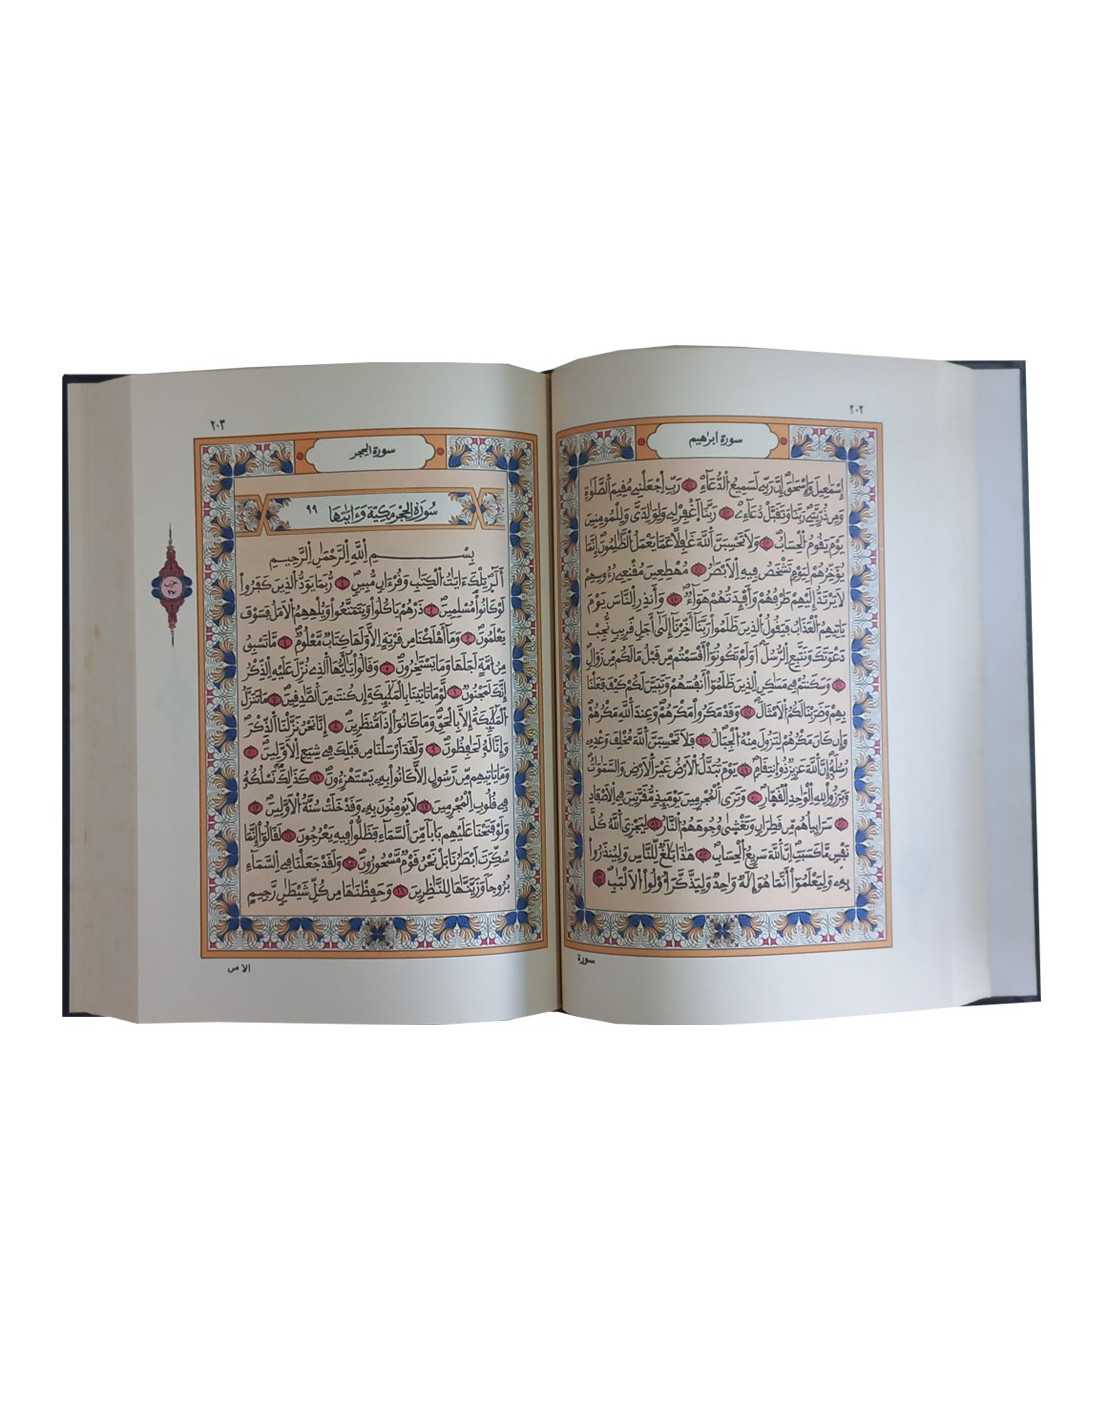 ٢٠٢
سورة ابراهيم
إِسْمَٰعِيلَ وَإِسْحَٰقَۖ إِنَّ رَبِّے لَسَمِيعُ الدُّعَآءِۖ ٤١ رَبِّ اِجْعَلْنِے مُقِيمَ الصَّلَوٰةِ
وَمِن ذُرِّيَّتِےۖ رَبَّنَا وَتَقَبَّلْ دُعَآءِۦۖ ٤٢ رَبَّنَا اَغْفِرْ لِے وَلِوَٰلِدَيَّ وَلِلْمُومِنِينَ
يَوْمَ يَقُومُ الْحِسَابُۖ ٤٣ وَلَا تَحْسِبَنَّ اَللَّهَ غَٰفِلًا عَمَّا يَعْمَلُ الظَّٰلِمُونَۖ إِنَّمَا
يُؤَخِّرُهُمْ لِيَوْمٍ تَشْخَصُ فِيهِ اِلْأَبْصَٰرُ ٤٤ مُهْطِعِينَ مُقْنِعِے رُءُوسِهِمْ
لَا يَرْتَدُّ إِلَيْهِمْ طَرْفُهُمْ وَأَفْـِٕدَتُهُمْ هَوَآءٌۖ ٤٥ وَأَنذِرِ النَّاسَ يَوْمَ
يَاتِيهِمُ الْعَذَابُ فَيَقُولُ الذِينَ ظَلَمُواْ رَبَّنَآ أَخِّرْنَآ إِلَيٰٓ أَجَلٖ قَرِيبٖ نُّجِبْ
دَعْوَتَكَ وَنَتَّبِعِ الرُّسُلَۖ أَوَلَمْ تَكُونُوٓاْ أَقْسَمْتُم مِّن قَبْلُ مَا لَكُم مِّن زَوَالٖ
٤٦ وَسَكَنتُمْ فِے مَسَٰكِنِ الذِينَ ظَلَمُوٓاْ أَنفُسَهُمْ وَتَبَيَّنَ لَكُمْ كَيْفَ فَعَلْنَا
بِهِمْ وَضَرَبْنَا لَكُمُ الْأَمْثَالَۖ ٤٧ وَقَدْ مَكَرُواْ مَكْرَهُمْ وَعِندَ اَللَّهِ مَكْرُهُمْ
وَإِن كَانَ مَكْرُهُمْ لِتَزُولَ مِنْهُ الْجِبَالُۖ ٤٨ فَلَا تَحْسِبَنَّ اَللَّهَ مُخْلِفَ وَعْدِهِۦ
رُسُلَهُۥٓۖ إِنَّ اَللَّهَ عَزِيزٌ ذُو اُنتِقَامٖۖ ٤٩ يَوْمَ تُبَدَّلُ الْأَرْضُ غَيْرَ اَلْأَرْضِ وَالسَّمَٰوَٰتُ
وَبَرَزُواْ لِلهِ اِلْوَٰحِدِ اِلْقَهّٰارِۖ ٥٠ وَتَرَي اَلْمُجْرِمِينَ يَوْمَئِذٖ مُّقَرَّنِينَ فِے اِلْأَصْفَادِ
٥١ سَرَابِيلُهُم مِّن قَطِرَانٖ وَتَغْشَيٰ وُجُوهَهُمُ النَّارُ ٥٢ لِيَجْزِيَ اَللَّهُ كُلَّ
نَفْسٖ مَّا كَسَبَتِۖ اِنَّ اَللَّهَ سَرِيعُ الْحِسَابِۖ ٥٣ هَٰذَا بَلَٰغٞ لِّلنَّاسِ وَلِيُنذَرُواْ
بِهِۦ وَلِيَعْلَمُوٓاْ أَنَّمَا هُوَ إِلَٰهٞ وَٰحِدٞ وَلِيَذَّكَّرَ أُوْلُواْ اُلْأَلْبَٰبِۖ ٥٤
سورة
٢٠٣
سورة الحجر
سُورَةُ الْحِجْرِ مَكِّيَّة وَءَايَتُهَا ٩٩
بِسْمِ اِللَّهِ اِلرَّحْمَٰنِ اِلرَّحِيمِ
أَلَٓرۖ تِلْكَ ءَايَٰتُ الْكِتَٰبِ وَقُرْءَانٖ مُّبِينٖۖ ١ رُّبَمَا يَوَدُّ الذِينَ كَفَرُواْ
لَوْ كَانُواْ مُسْلِمِينَۖ ٢ ذَرْهُمْ يَاكُلُواْ وَيَتَمَتَّعُواْ وَيُلْهِهِمُ الْأَمَلُ فَسَوْفَ
يَعْلَمُونَۖ ٣ وَمَآ أَهْلَكْنَا مِن قَرْيَةٍ إِلَّا وَلَهَا كِتَابٞ مَّعْلُومٞۖ ٤ مَّا تَسْبِقُ
مِنُ ا۟مَّةٍ أَجَلَهَا وَمَا يَسْتَٰخِرُونَۖ ٥ وَقَالُواْ يَٰٓأَيُّهَا الذِے نُزِّلَ عَلَيْهِ اِلذِّكْرُ
إِنَّكَ لَمَجْنُونٞۖ ٦ لَّوْ مَا تَاتِينَا بِالْمَلَٰٓئِكَةِ إِن كُنتَ مِنَ اَلصَّٰدِقِينَۖ ٧ مَا تَنَزَّلُ
الْمَلَٰٓئِكَةُ إِلَّا بِالْحَقِّۖ وَمَا كَانُوٓاْ إِذاٗ مُّنظَرِينَۖ ٨ إِنَّا نَحْنُ نَزَّلْنَا اَلذِّكْرَۖ
وَإِنَّا لَهُۥ لَحَٰفِظُونَۖ ٩ وَلَقَدَ اَرْسَلْنَا مِن قَبْلِكَ فِے شِيَعِ اِلْأَوَّلِينَۖ ١٠
وَمَا يَاتِيهِم مِّن رَّسُولٍ اِلَّا كَانُواْ بِهِۦ يَسْتَهْزِءُونَۖ ١١ كَذَٰلِكَ نَسْلُكُهُۥ
فِے قُلُوبِ اِلْمُجْرِمِينَ ١٢ لَا يُومِنُونَ بِهِۦ وَقَدْ خَلَتْ سُنَّةُ الْأَوَّلِينَۖ ١٣
وَلَوْ فَتَحْنَا عَلَيْهِم بَاباٗ مِّنَ اَلسَّمَآءِ فَظَلُّواْ فِيهِ يَعْرُجُونَ ١٤ لَقَالُوٓاْ إِنَّمَا
سُكِّرَتَ اَبْصَٰرُنَا بَلْ نَحْنُ قَوْمٞ مَّسْحُورُونَۖ ١٥ وَلَقَدْ جَعَلْنَا فِے اِلسَّمَآءِ
بُرُوجاٗ وَزَيَّنَّٰهَا لِلنَّٰظِرِينَ ١٦ وَحَفِظْنَٰهَا مِن كُلِّ شَيْطَٰنٖ رَّجِيمٍ
الا من
حزب
٢٧